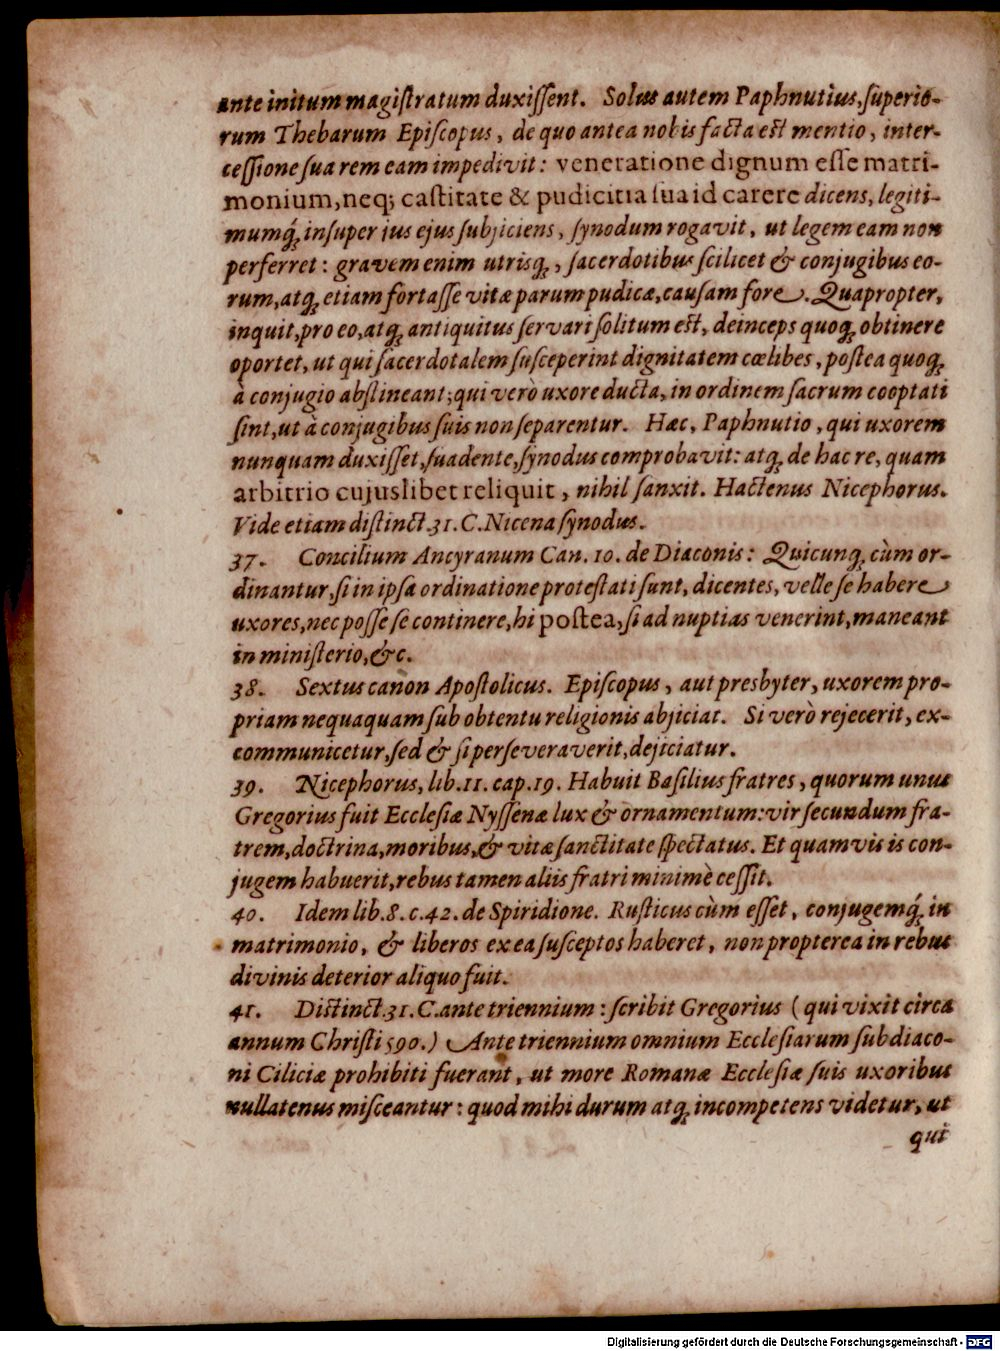 ante initum magiſtratum duxiſſent. Solus autem Paphnutius, ſuperio-
rum Thebarum Epiſcopus, de quo antea nobis facta est mentio, inter-
ceſſione ſua rem eam impedivit: veneratione dignum eſſe matri-
monium, neq; caſtitate & pudicitia ſua id carere dicens, legiti-
mumq́; inſuper ius ejus ſubjiciens, ſynodum rogavit, ut legem eam non
perferret: gravem enim utrisq;, ſacerdotibus ſcilicet & conjugibus eo-
rum, atq; etiam fortaſſe vitæ parum pudicæ, cauſam fore. Quapropter,
inquit, pro eo, atq; antiquitus ſervari ſolitum est, deinceps quoq; obtinere
oportet, ut qui ſacerdotalem ſuſceperint dignitatem cœlibes, poſtea quoq;
à conjugio abſtineant; qui verò uxore ducta, in ordinem ſacrum cooptati
ſint, ut à conjugibus ſuis non ſeparentur. Hæc, Paphnutio, qui uxorem
nunquam duxiſſet, ſuadente, ſynodus comprobavit: atq; de hac re, quam
arbitrio cujuslibet reliquit, nihil ſanxit. Hactenus Nicephorus.
Vide etiam diſtinct. 31. C. Nicena ſynodus.
37. Concilium Ancyranum Can. 10. de Diaconis: Quicunq; cùm or-
dinantur, ſi in ipſa ordinatione proteſtati ſunt, dicentes, velle ſe habere
uxores, nec poſſe ſe continere, hi poſtea, ſi ad nuptias venerint, maneant
in miniſterio, &c.
38. Sextus canon Apoſtolicus. Epiſcopus, aut presbyter, uxorem pro-
priam nequaquam ſub obtentu religionis abjiciat. Si verò rejecerit, ex-
communicetur, ſed & ſi perſeveraverit, dejiciatur.
39. Nicephorus, lib. 11. cap. 19. Habuit Baſilius fratres, quorum unus
Gregorius fuit Eccleſiæ Nyſſenæ lux & ornamentum: vir ſecundum fra-
trem, doctrina, moribus, & vitæ ſanctitate ſpectatus. Et quamvis is con-
jugem habuerit, rebus tamen aliis fratri minimè ceſſit.
40. Idem lib. 8. c. 42. de Spiridione. Ruſticus cùm eſſet, conjugemq́; in
matrimonio, & liberos ex ea ſuſceptos haberet, non propterea in rebus
divinis deterior aliquo fuit.
41. Distinct. 31. C. ante triennium: ſcribit Gregorius (qui vixit circa
annum Chriſti 590.) Ante triennium omnium Eccleſiarum ſubdiaco-
ni Ciliciæ prohibiti fuerant, ut more Romanæ Eccleſiæ ſuis uxoribus
nullatenus miſceantur: quod mihi durum atq; incompetens videtur, ut
qui
Digitalisierung gefördert durch die Deutsche Forschungsgemeinschaft - DFG